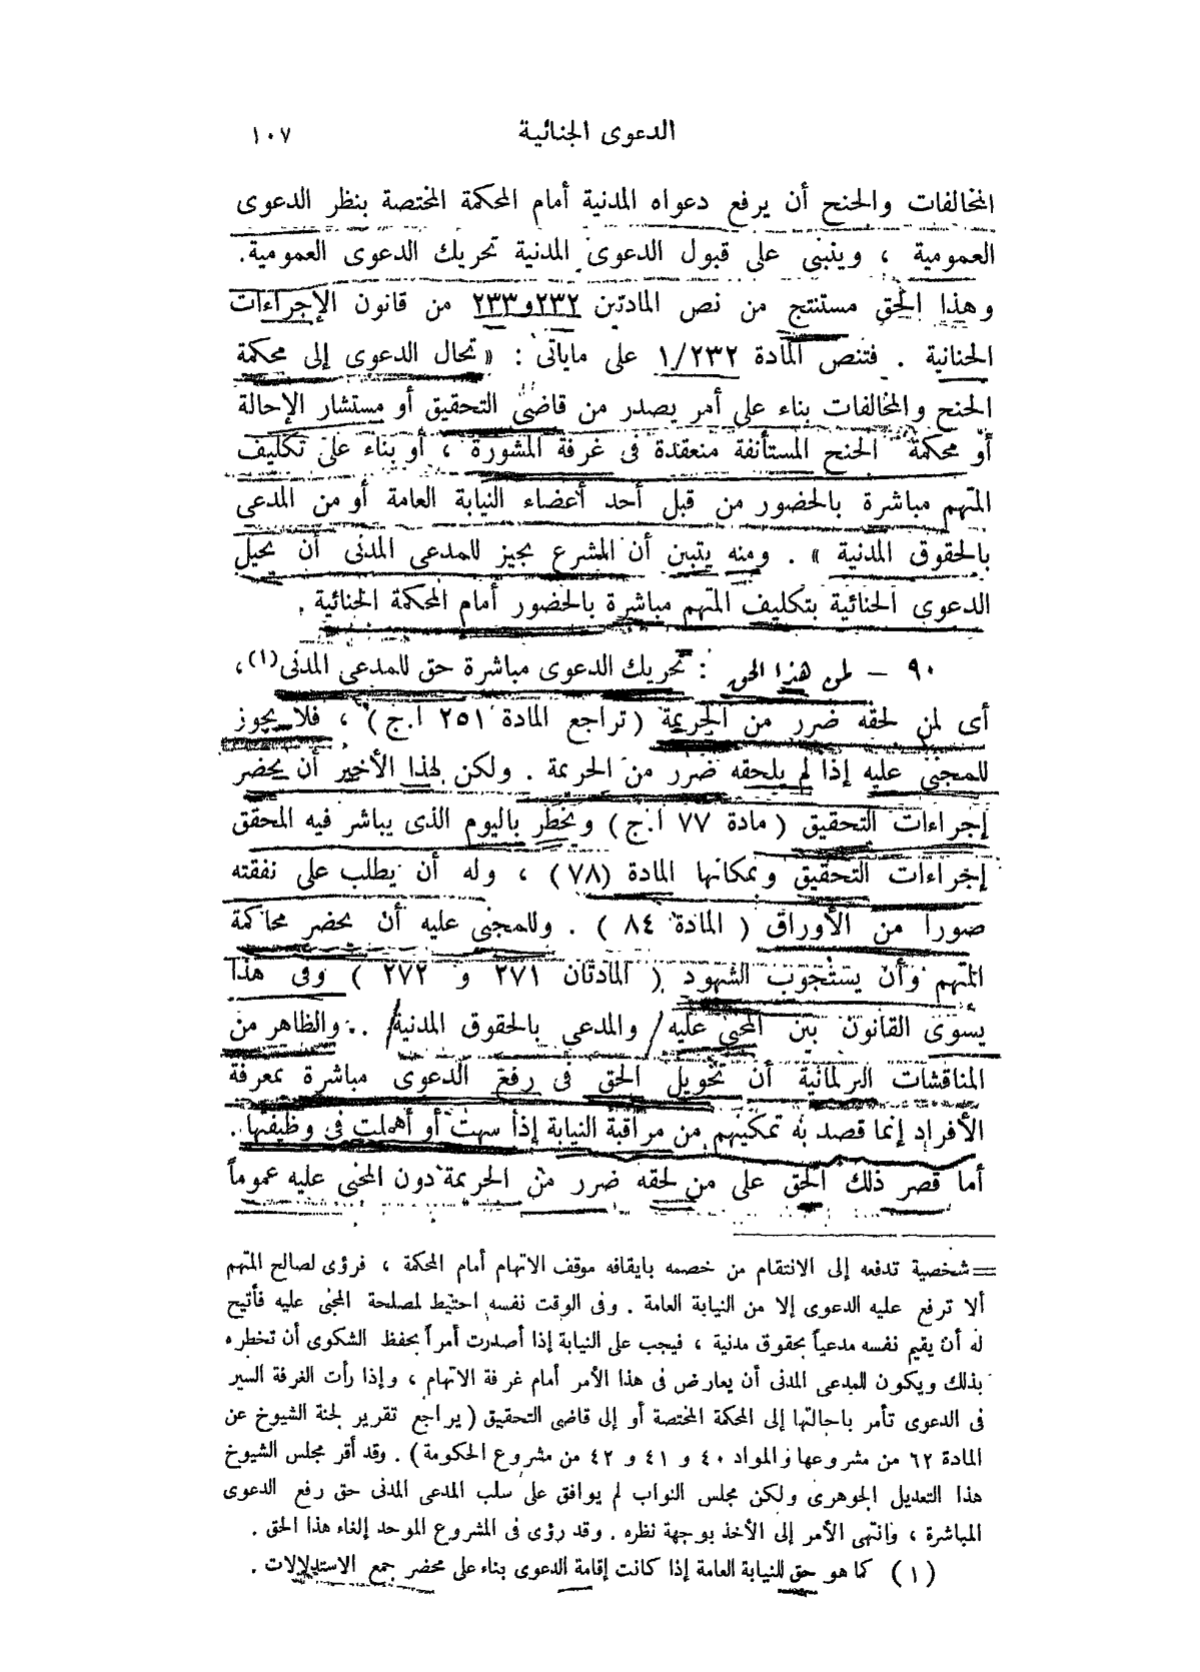 الدعوى الجنائية ١٠٧
المخالفات والجنح أن يرفع دعواه المدنية أمام المحكمة المختصة بنظر الدعوى
العمومية ، وينبنى على قبول الدعوى المدنية تحريك الدعوى العمومية.
وهذا الحق مستنتج من نص المادتين ٢٣٢و٢٣٣ من قانون الإجراءات
الجنائية . فتنص المادة ٢٣٢/١ على ماياتى : « تحال الدعوى إلى محكمة
الجنح والمخالفات بناء على أمر يصدر من قاضى التحقيق أو مستشار الإحالة
أو محكمة الجنح المستأنفة منعقدة فى غرفة المشورة ، أو بناء على تكليف
المتهم مباشرة بالحضور من قبل أحد أعضاء النيابة العامة أو من المدعى
بالحقوق المدنية » . ومنه يتبين أن المشرع يجيز للمدعى المدنى أن يحيل
الدعوى الجنائية بتكليف المتهم مباشرة بالحضور أمام المحكمة الجنائية .
٩٠ – لمن هذا الحق : تحريك الدعوى مباشرة حق للمدعى المدنى(١) ،
أى لمن لحقه ضرر من الجريمة ( تراجع المادة ٢٥١ ا.ج ) ، فلا يجوز
للمجنى عليه إذا لم يلحقه ضرر من الجريمة . ولكن لهذا الأخير أن يحضر
إجراءات التحقيق ( مادة ٧٧ ا.ج ) ويخطر باليوم الذى يباشر فيه المحقق
إجراءات التحقيق وبمكانها المادة (٧٨) ، وله أن يطلب على نفقته
صوراً من الأوراق ( المادة ٨٤ ) . وللمجنى عليه أن يحضر محاكمة
المتهم وأن يستجوب الشهود ( المادتان ٢٧١ و ٢٧٢ ) وفى هذا
يسوى القانون بين المجنى عليه والمدعي بالحقوق المدنية .. والظاهر من
المناقشات البرلمانية أن تخويل الحق فى رفع الدعوى مباشرة بمعرفة
الأفراد إنما قصد به تمكينهم من مراقبة النيابة إذا سهت أو أهملت فى وظيفتها .
أما قصر ذلك الحق على من لحقه ضرر من الجريمة دون المجنى عليه عموماً
= شخصية تدفعه إلى الانتقام من خصمه بايقافه موقف الاتهام أمام المحكمة ، فرؤى لصالح المتهم
ألا ترفع عليه الدعوى إلا من النيابة العامة . وفى الوقت نفسه احتيط لمصلحة المجنى عليه فأتيح
له أن يقيم نفسه مدعياً بحقوق مدنية ، فيجب على النيابة إذا أصدرت أمراً بحفظ الشكوى أن تخطره
بذلك ويكون للمدعى المدنى أن يعارض فى هذا الأمر أمام غرفة الاتهام ، وإذا رأت الغرفة السير
فى الدعوى تأمر باحالتها إلى المحكمة المختصة أو إلى قاضى التحقيق ( يراجع تقرير لجنة الشيوخ عن
المادة ٦٢ من مشروعها والمواد ٤٠ و ٤١ و ٤٢ من مشروع الحكومة ) . وقد أقر مجلس الشيوخ
هذا التعديل الجوهرى ولكن مجلس النواب لم يوافق على سلب المدعى المدنى حق رفع الدعوى
المباشرة ، وانتهى الأمر إلى الأخذ بوجهة نظره . وقد رؤى فى المشروع الموحد إلغاء هذا الحق .
( ١ ) كما هو حق للنيابة العامة إذا كانت إقامة الدعوى بناء على محضر جمع الاستدلالات .